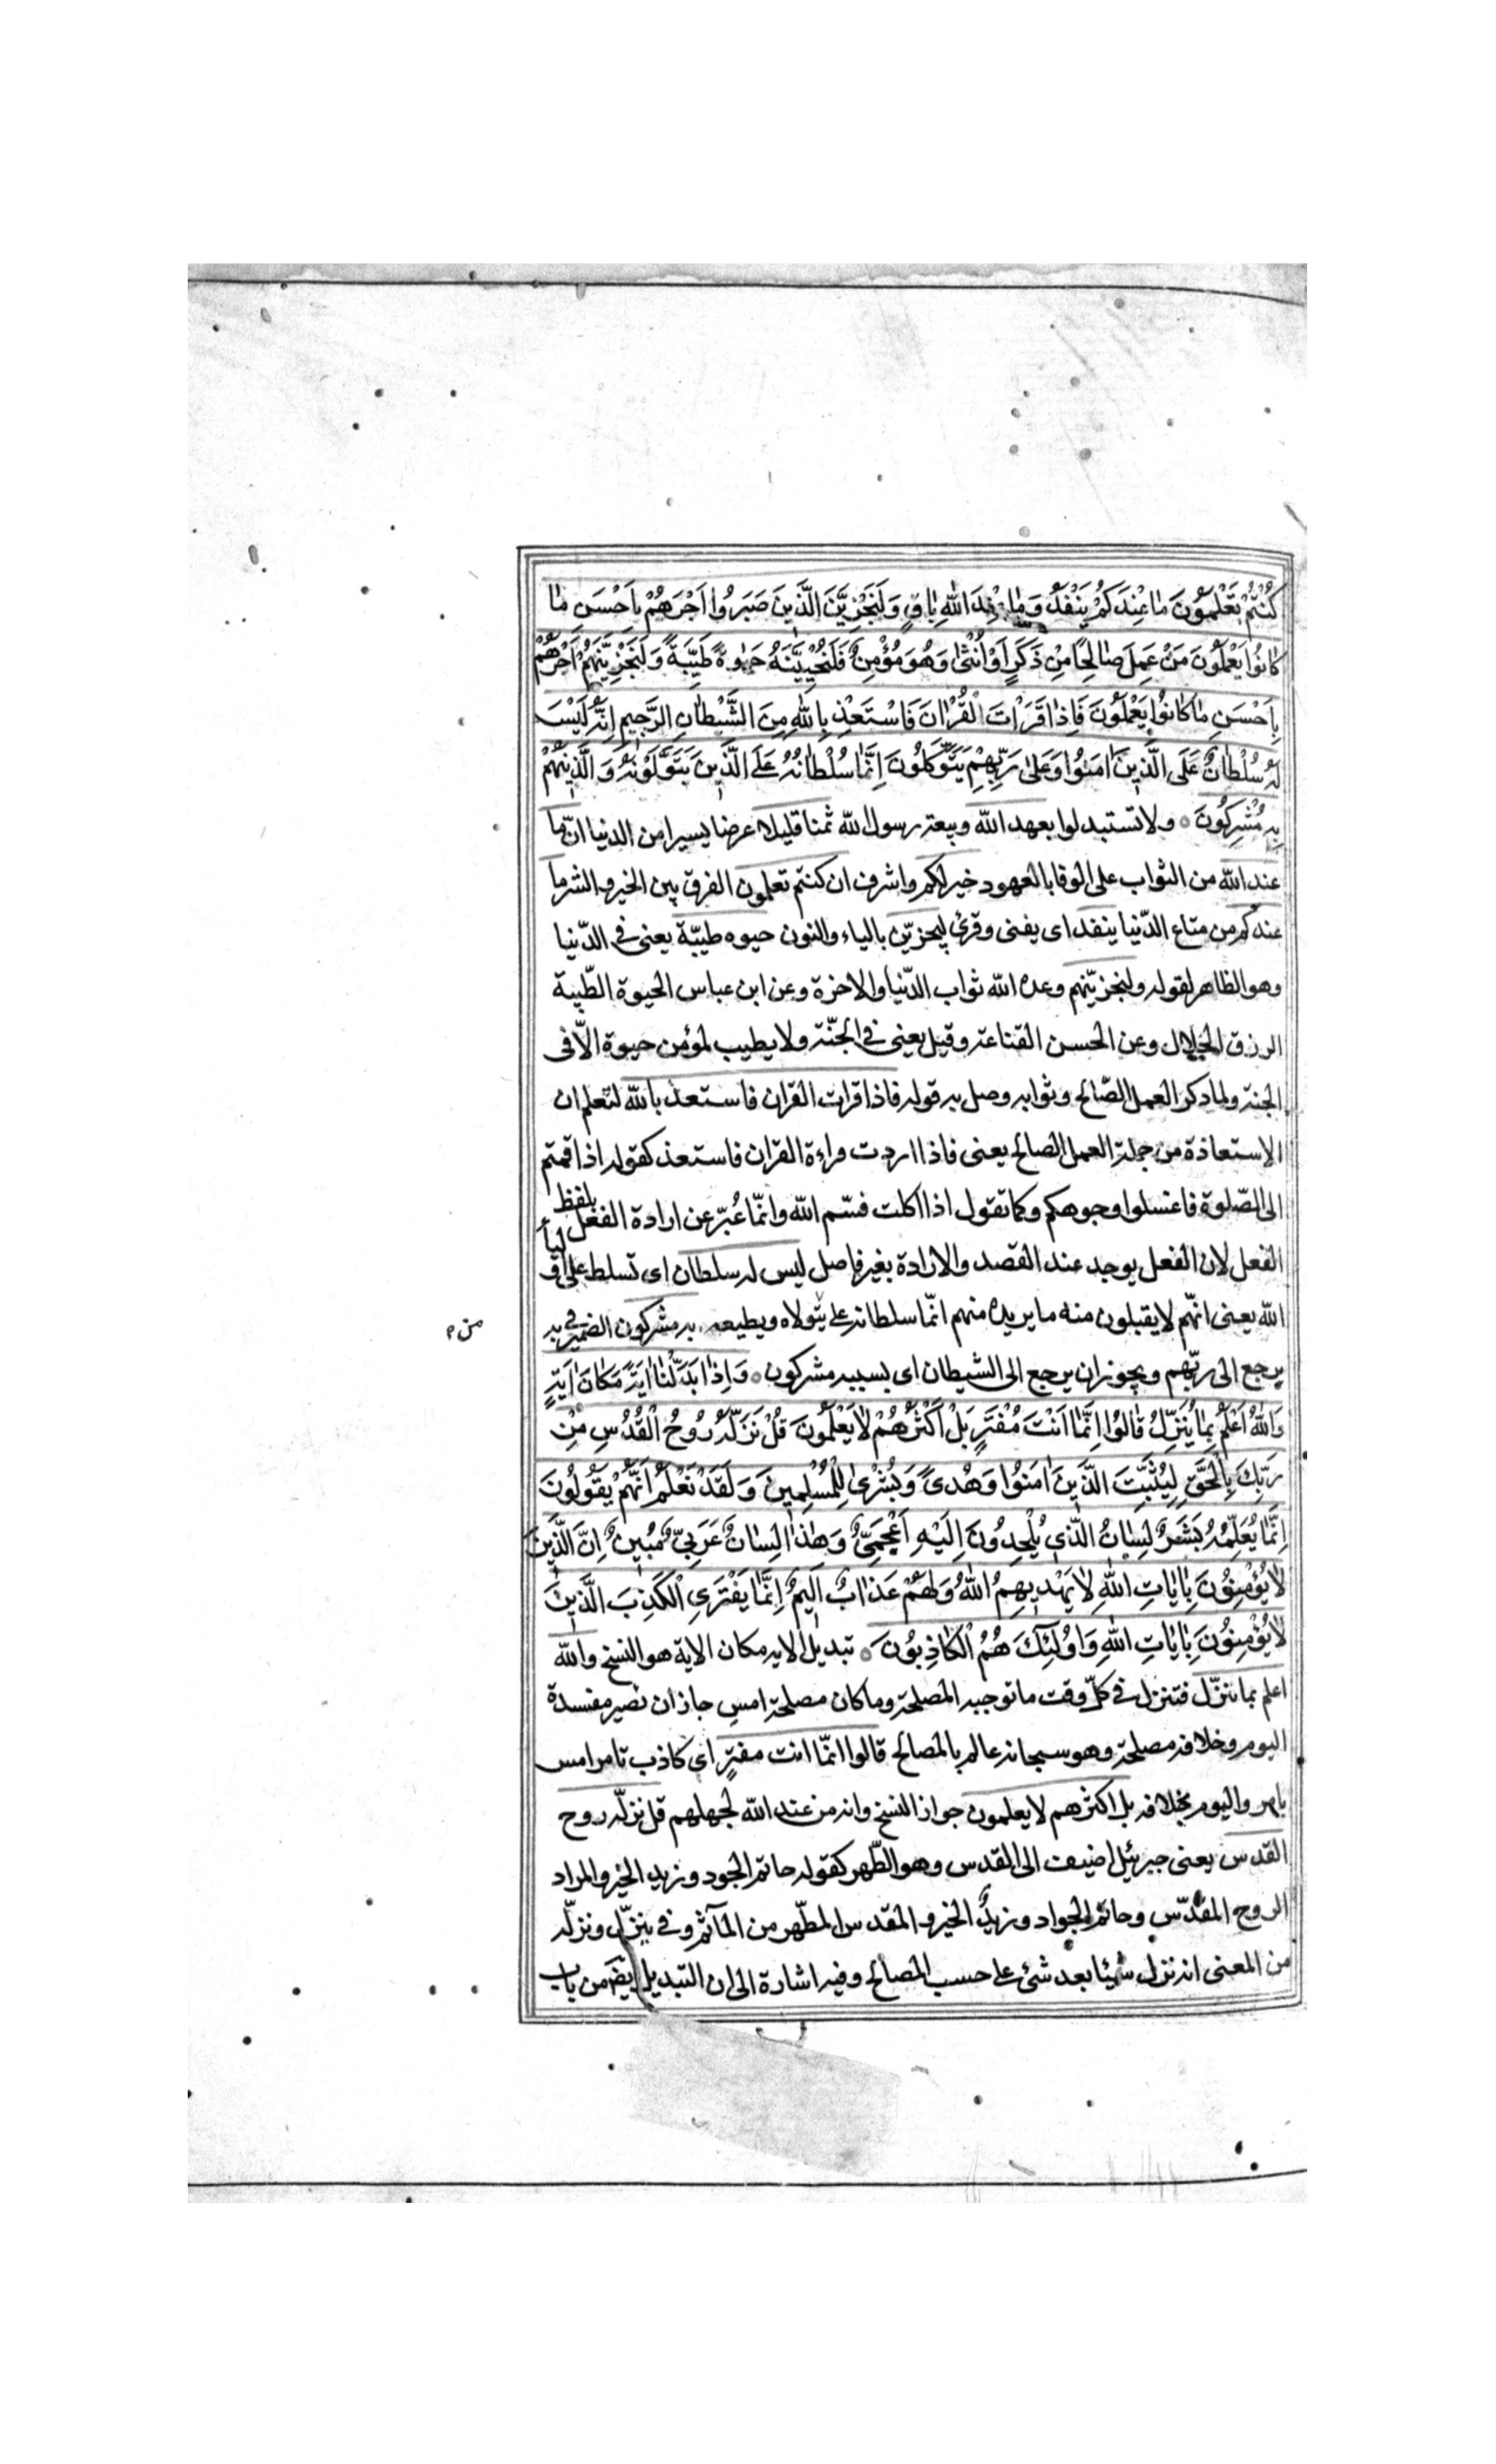 كُنْتُمْ تَعْلَمُونَ مٰا عِنْدَكُمْ يَنْفَدُ وَمٰا عِنْدَ اللّٰهِ بٰاقٍ وَلَنَجْزِيَنَّ الَّذِينَ صَبَرُوا اَجْرَهُمْ بِاَحْسَنِ مٰا
كٰانُوا يَعْمَلُونَ مَنْ عَمِلَ صٰالِحًا مِنْ ذَكَرٍ اَوْ اُنْثٰى وَهُوَ مُؤْمِنٌ فَلَنُحْيِيَنَّهُ حَيٰوةً طَيِّبَةً وَلَنَجْزِيَنَّهُمْ اَجْرَهُمْ
بِاَحْسَنِ مٰا كٰانُوا يَعْمَلُونَ فَاِذٰا قَرَاْتَ الْقُرْاٰنَ فَاسْتَعِذْ بِاللّٰهِ مِنَ الشَّيْطٰانِ الرَّجِيمِ اِنَّهُ لَيْسَ
لَهُ سُلْطٰانٌ عَلَى الَّذِينَ اٰمَنُوا وَعَلىٰ رَبِّهِمْ يَتَوَكَّلُونَ اِنَّمٰا سُلْطٰانُهُ عَلَى الَّذِينَ يَتَوَلَّوْنَهُ وَالَّذِينَ هُمْ
بِهِ مُشْرِكُونَ ۰ ولا تستبدلوا بعهد الله وبيعة رسول الله ثمنا قليلا عرضا يسيرا من الدنيا انّ ما
عند الله من الثواب على الوفا بالعهود خير لكم واشرف ان كنتم تعلمون الفرق بين الخير والشر ما
عندكم من متاع الدّنيا ينفد اى يفنى وقرئ ليجزيّن بالياء والنون حيوه طيبّة يعنى فى الدّنيا
وهو الظاهر لقوله ولنجزيّنهم وعده الله ثواب الدّنيا والاخرة وعن ابن عباس الحيوة الطّيبة
الرزق الحلال وعن الحسن القناعة وقيل يعنى فى الجنّة ولا يطيب لمؤمن حيوة الّا فى
الجنة ولما ذكر العمل الصّالح وثوابه وصل به قوله فاذا قرات القران فاستعذ بالله لتعلم ان
الاستعاذة من جملة العمل الصالح يعنى فاذا اردت قراءة القران فاستعذ كقوله اذا قمتم
الى الصّلوة فاغسلوا وجوهكم وكما تقول اذا اكلت فسّم الله وانمّا عُبّر عن ارادة الفعل بلفظ
الفعل لان الفعل يوجد عند القصد والارادة بغير فاصل ليس له سلطان اى تسلط على اوليا
الله يعنى انهّم لا يقبلون منه ما يريده منهم انمّا سلطانه على يتولاه ويطيعه به مشركون الضمير فى به
من
يرجع الى ربّهم ويجوز ان يرجع الى الشيطان اى بسببه مشركون ۰ وَاِذٰا بَدَّلْنٰا اٰيَةً مَكٰانَ اٰيَةٍ
وَاللّٰهُ اَعْلَمُ بِمٰا يُنَزِّلُ قٰالُوا اِنَّمٰا اَنْتَ مُفْتَرٍ بَلْ اَكْثَرُهُمْ لاٰ يَعْلَمُونَ قُلْ نَزَّلَهُ رُوحُ الْقُدُسِ مِنْ
رَبِّكَ بِالْحَقِّ لِيُثَبِّتَ الَّذِينَ اٰمَنُوا وَهُدىً وَبُشْرىٰ لِلْمُسْلِمِينَ وَلَقَدْ نَعْلَمُ اَنَّهُمْ يَقُولُونَ
اِنَّمٰا يُعَلِّمُهُ بَشَرٌ لِسٰانُ الَّذِي يُلْحِدُونَ اِلَيْهِ اَعْجَمِيٌّ وَهٰذٰا لِسٰانٌ عَرَبِيٌّ مُبِينٌ اِنَّ الَّذِينَ
لاٰ يُؤْمِنُونَ بِاٰيٰاتِ اللّٰهِ لاٰ يَهْدِيهِمُ اللّٰهُ وَلَهُمْ عَذٰابٌ اَلِيمٌ اِنَّمٰا يَفْتَرِي الْكَذِبَ الَّذِينَ
لاٰ يُؤْمِنُونَ بِاٰيٰاتِ اللّٰهِ وَاُولٰئِكَ هُمُ الْكٰاذِبُونَ ۰ تبديل الايه مكان الاية هو النسخ والله
اعلم بما ينزّل فتنزل فى كلّ وقت ما توجبه المصلحة وما كان مصلحة امس جاز ان تصير مفسدة
اليوم وخلافه مصلحة وهو سبحانه عالم بالمصالح قالوا انمّا انت مفترٍ اى كاذب تامر امس
بامر واليوم بخلافه بل اكثرهم لا يعلمون جواز النسخ وانه من عند الله لجهلهم قل نزّله روح
القدس يعنى جبرئيل اضيف الى القدس وهو الطّهر كقوله حاتم الجود وزيد الخير والمراد
الروح المقدّس وحاتم الجواد وزيد الخير والمقدس المطّهر من المآثم وفى ينزّل ونزّله
من المعنى انه نزل شيئا بعد شئ على حسب المصالح وفيه اشارة الى ان التبديل ايضً من باب